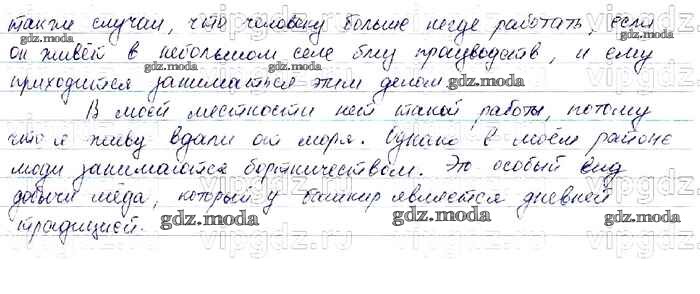 такие случаи, что человеку больше негде работать, если
он живёт в небольшом селе без производств, и ему
приходится заниматься этим делом.
В моей местности нет такой работы, потому
что я живу вдали от моря. Однако в моём районе
люди занимаются бортничеством. Это особый вид
добычи мёда, который у башкир является древней
традицией.
gdz.moda
gdz.moda
gdz.moda
gdz.moda
gdz.moda
vipgdz.ru